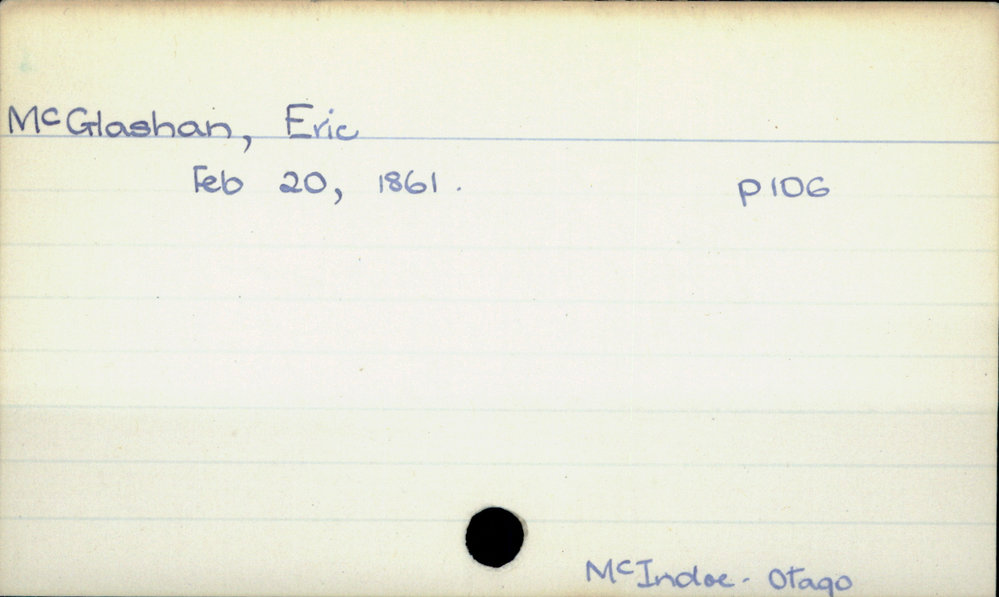 McGlashan, Eric
Feb 20, 1861. p106
McIndoe. Otago